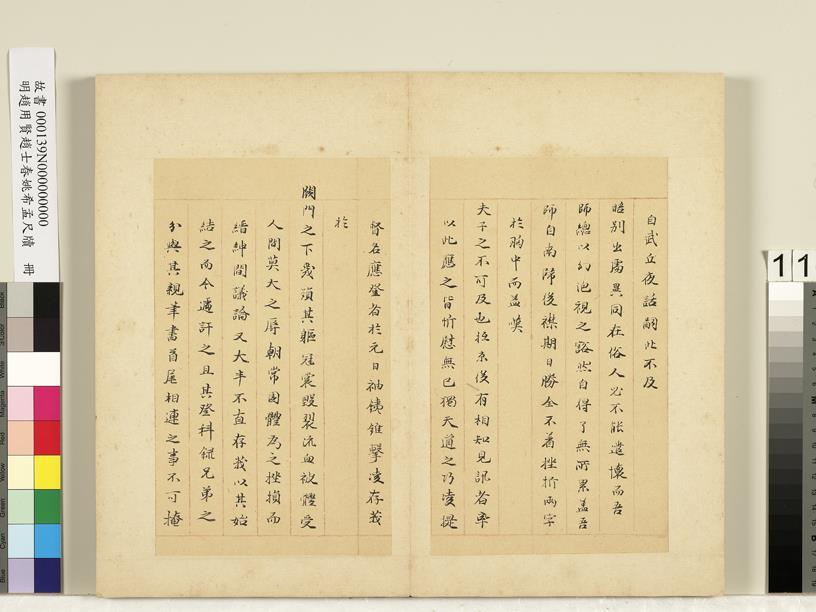 自武丘夜話嗣此不及
晤別出處異同在俗人必不能遣懷而吾
師總以幻泡視之豁然自得了無所累蓋吾
師自南歸後襟期日勝全不着挫折兩字
於胸中而益嘆
夫子之不可及也 後有相知見訊者率
以此應之皆忻慰無已獨天道之巧凌提
督名應登者於元日袖鐵錐擊凌存義
於
闕門之下幾殞其軀冠裳毀裂流血被體受
人間莫大之辱朝常國體為之挫損而
縉紳間議論又大半不直存義以其始
結之而今適訐之且其登科錄兄弟之
分與其親筆書首尾相連之事不可掩
故書000139N000000000
明趙用賢趙士春姚希孟尺牘 冊
11